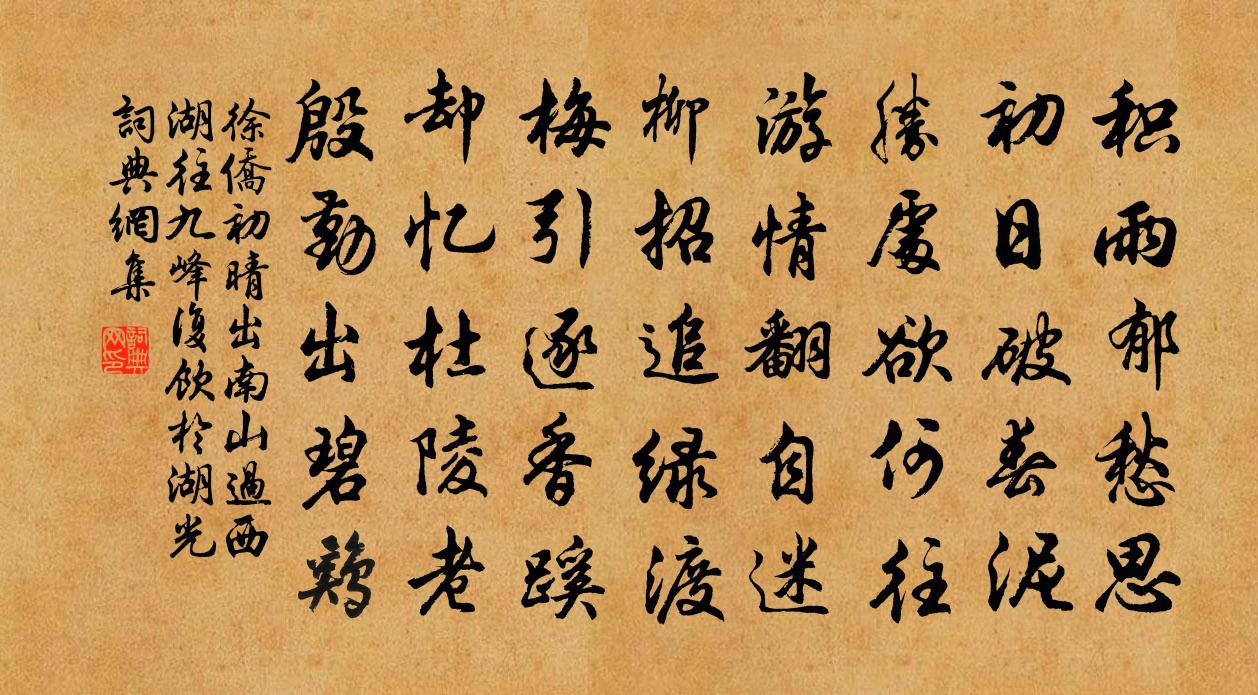 积雨郁愁思
初日破春泥
胜处欲何往
游情翻自迷
柳招追绿渡
梅引逐香蹊
却忆杜陵老
殷勤出碧鸡
徐侨初晴出南山過西
湖往九峰復飲於湖光
詞典網集
詞典网印